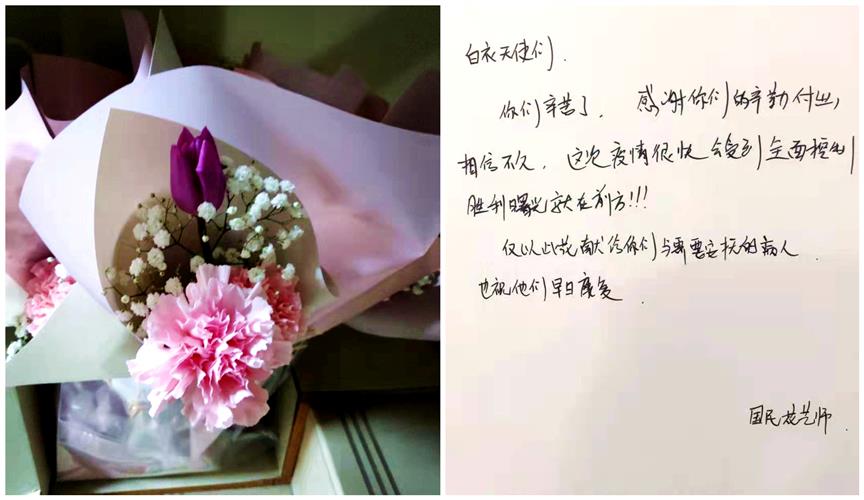 白衣天使们.
你们辛苦了. 感谢你们的辛勤付出,
相信不久. 这次疫情很快会受到全面控制
胜利曙光就在前方!!!
仅以此花献给你们与需要安抚的病人.
也祝他们早日康复.
国民花艺师.